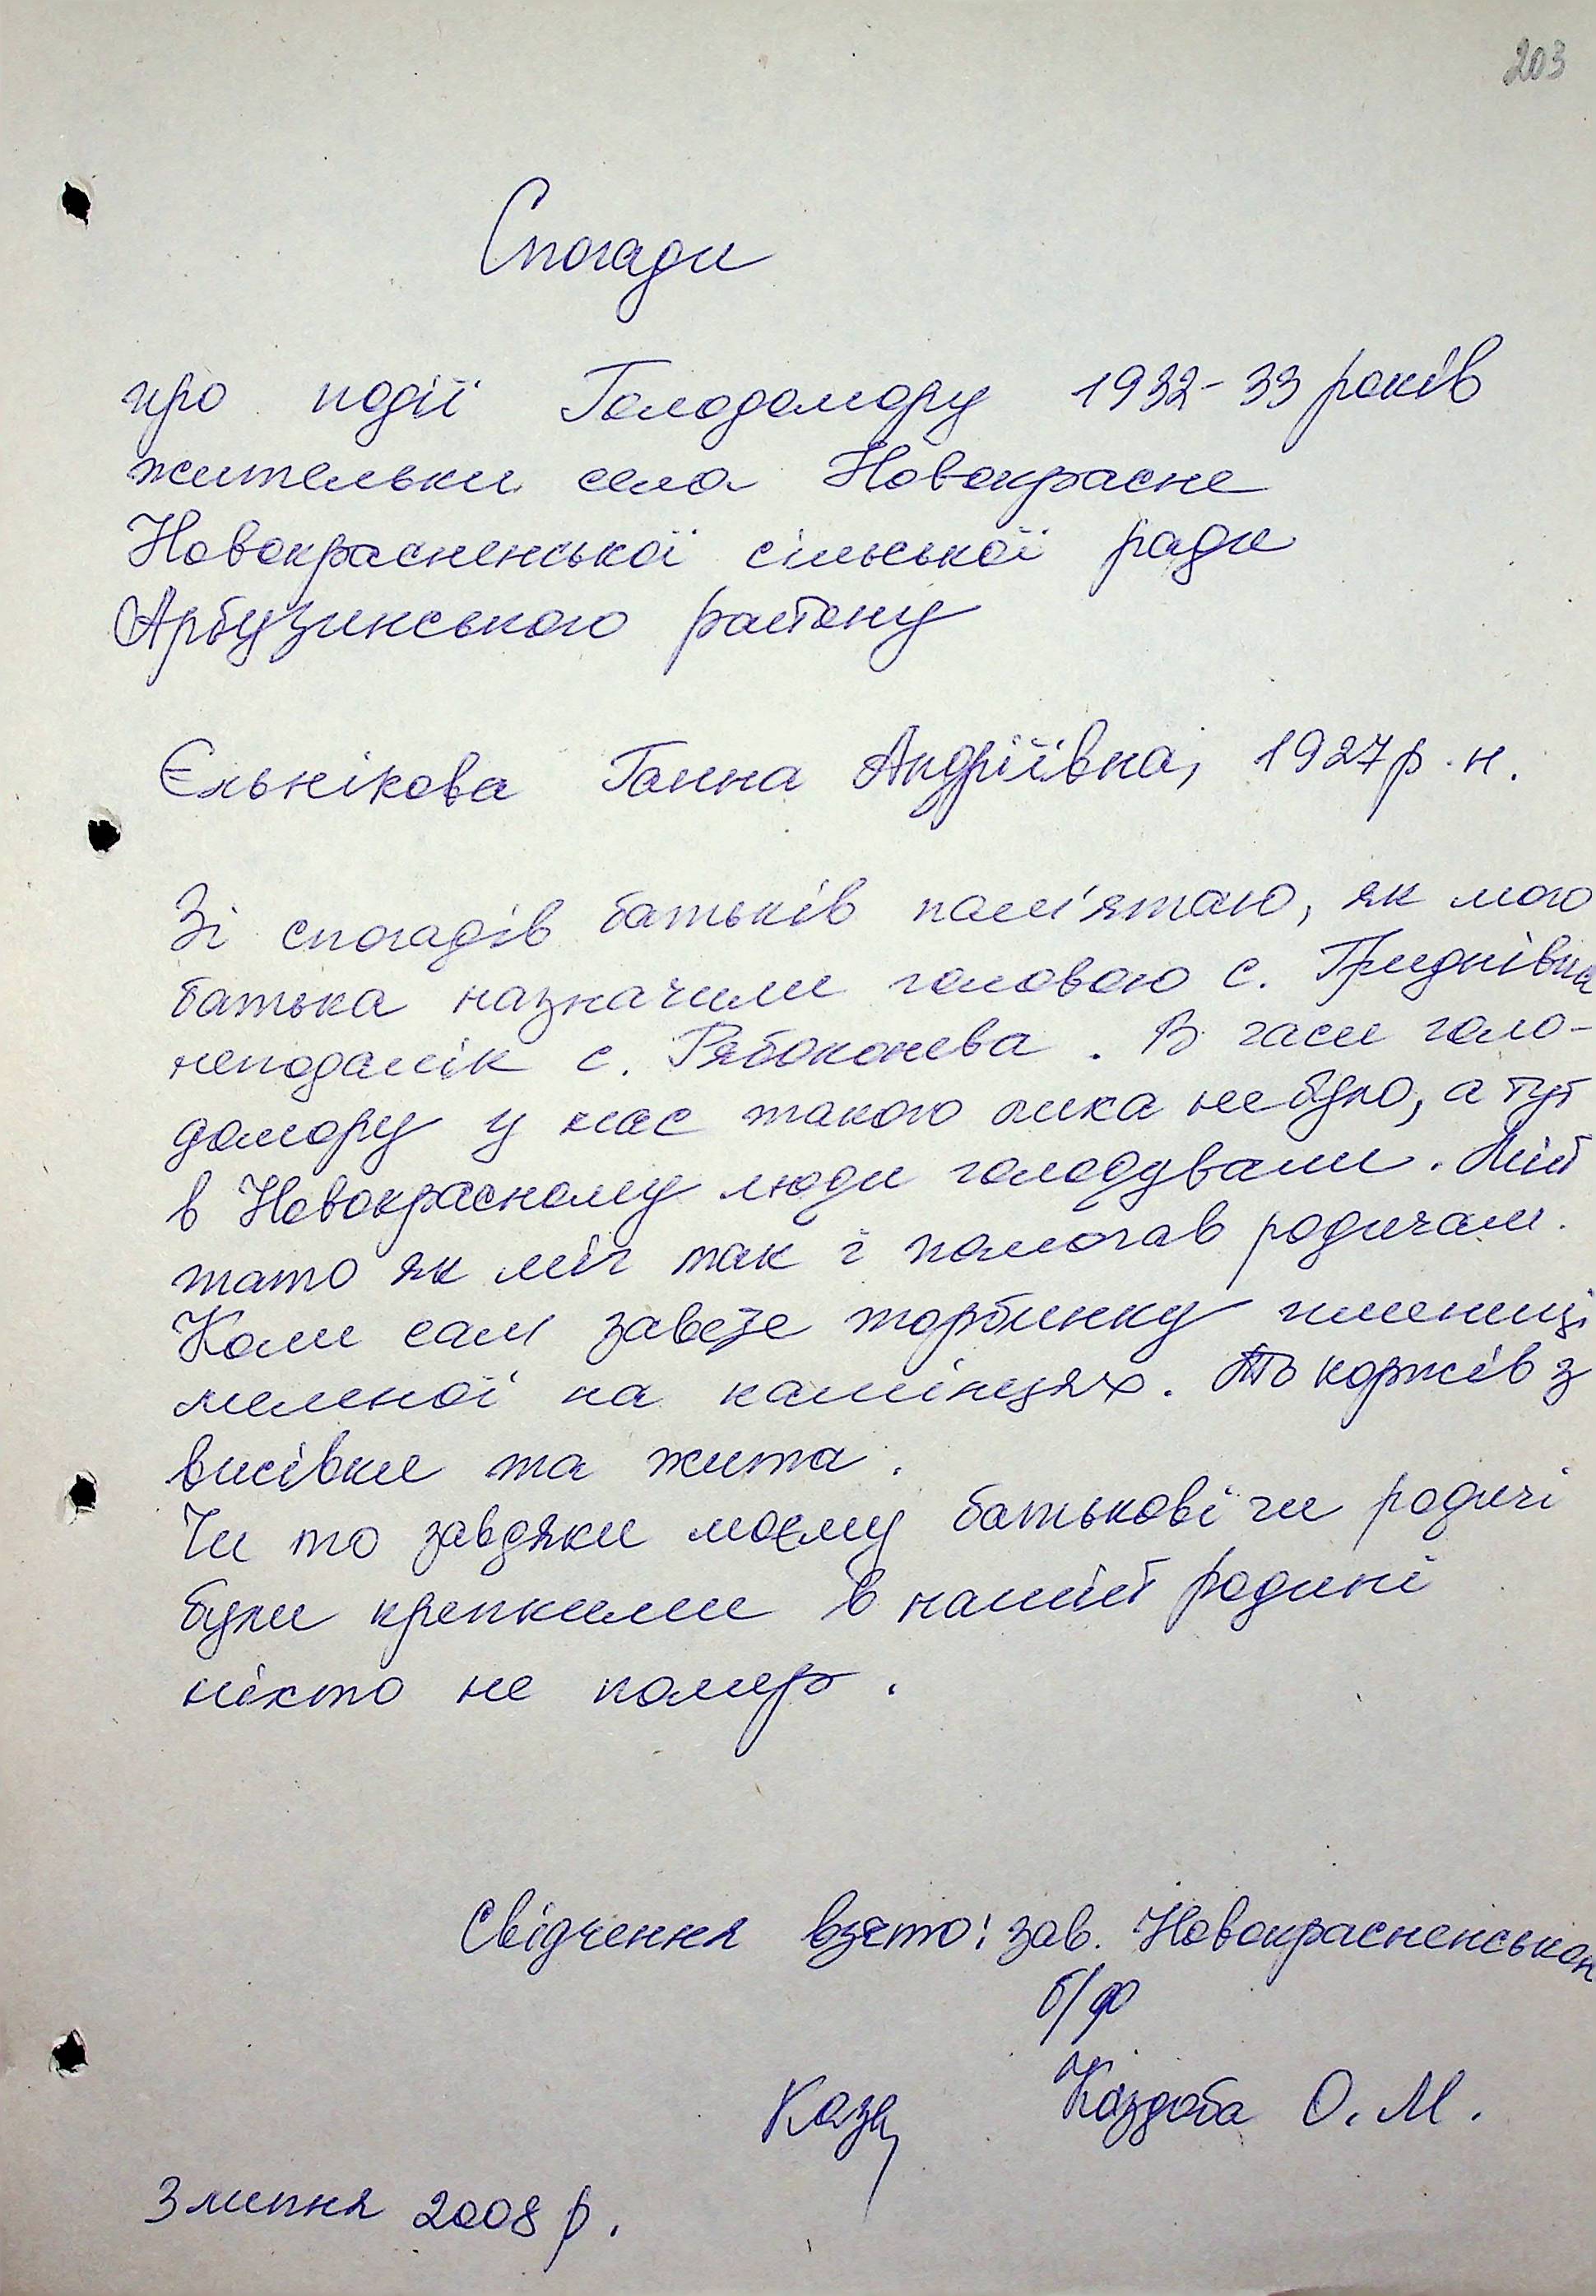 203
Спогади
про події Голодомору 1932-33 років
жительки села Новокрасне
Новокрасненської сільської ради
Арбузинського району
Єльнікова Ганна Андріївна, 1927 р. н.
Зі спогадів батьків пам'ятаю, як мого
батька назначили головою с. Гриднівка
неподалік с. Рябоконева. В часи голо-
домору у нас такого лиха не було, а тут
в Новокрасному люди голодували. Мій
тато як міг так і помогав родичам.
Коли сам завезе торбинку пшениці
меленої на камінцях. То коржів з
висівки та жита.
Чи то завдяки моєму батькові чи родичі
були крепкими в нашій родині
ніхто не помер.
Свідчення взято: зав. Новокрасненською
б/ф
Каздоба О. М.
3 липня 2008 р.